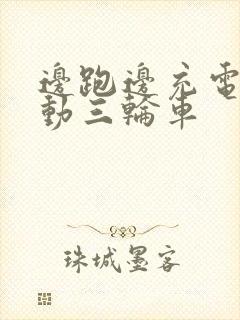 邊跑邊充電
動三輪車
珠城墨客